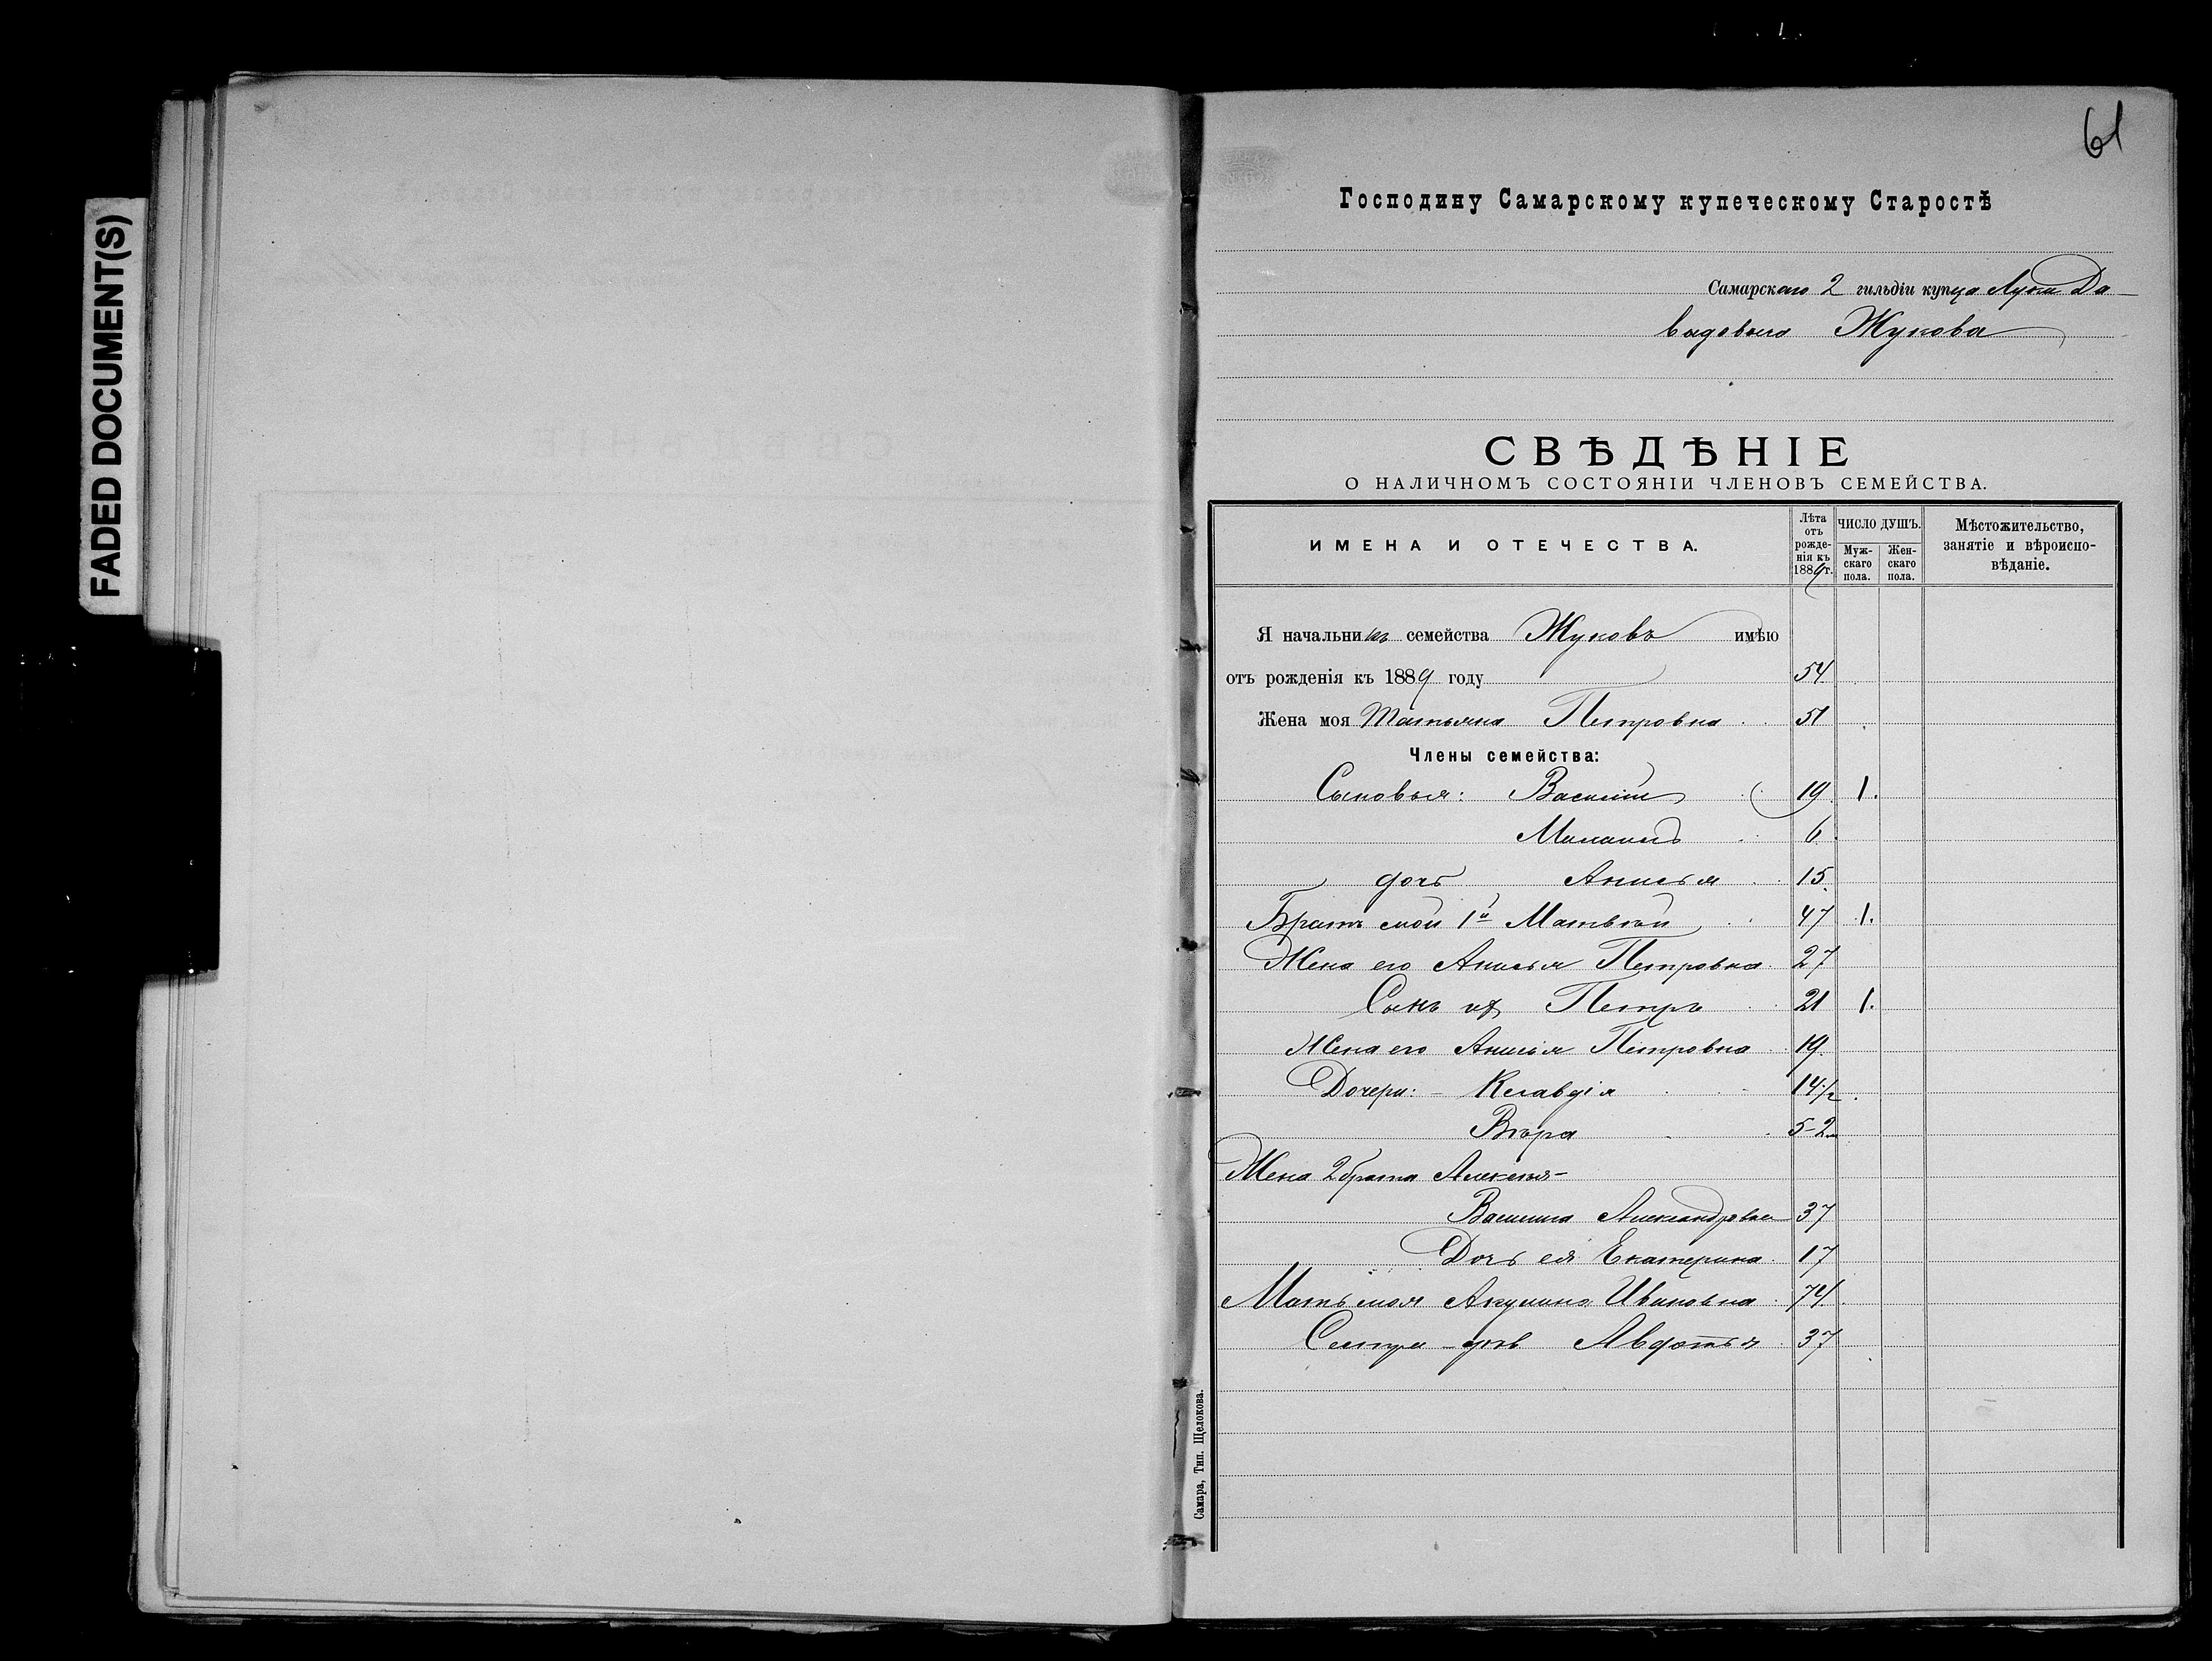 FADED DOCUMENT(S)
61
Господину Самарскому купеческому Старостѣ
Самарскаго 2 гильдіи купца Луки Да-
выдовича Жукова
СВѢДѢНІЕ
О НАЛИЧНОМЪ СОСТОЯНІИ ЧЛЕНОВЪ СЕМЕЙСТВА.
ИМЕНА И ОТЕЧЕСТВА.
Лѣта отъ рожденія къ 1889 г.
ЧИСЛО ДУШЪ.
Мужскаго пола.
Женскаго пола.
Мѣстожительство, занятіе и вѣроисповѣданіе.
Я начальникъ семейства Жуковъ имѣю
отъ рожденія къ 1889 году 54
Жена моя Татьяна Петровна 51
Члены семейства:
Сыновья: Василій 19 1.
Михаилъ 6
дочь Анисья 15
Братъ мой 1й Матвѣй 47 1.
Жена его Анисья Петровна 27
Сынъ их Петръ 21 1.
Жена его Анисья Петровна 19
Дочери: - Клавдія 14 1/2
Вѣра 5-2м
Жена 2 брата Алексѣя-
Василиса Александровна 37
Дочь ея Екатерина 17
Мать моя Акулина Ивановна 74
Сестра - дѣв Авдотья 37
Самара, Тип. Щелокова.